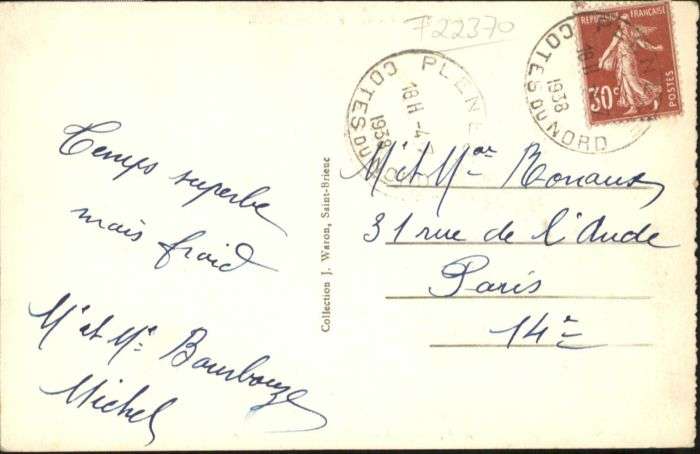 F22370
REPUBLIQUE FRANÇAISE
30c
POSTES
18 H
1938
COTES DU NORD
PLENE
18 H
-4
1938
COTES DU NORD
Temps superbe
mais froid
Mr et Me Bourbouze
Michel
Collection J. Waron, Saint-Brieuc
Mr et Mme
31 rue de l'Aude
Paris
14e